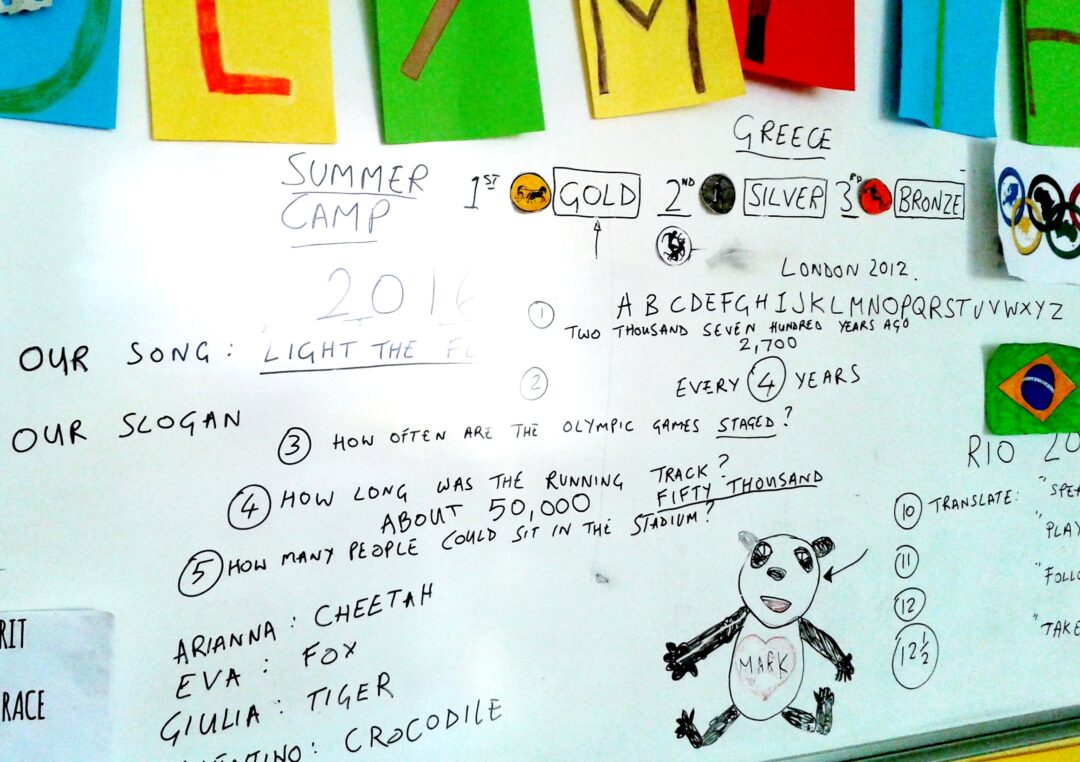 L Y M
GREECE
SUMMER
CAMP
1ST GOLD 2ND SILVER 3RD BRONZE
LONDON 2012.
2016
1 A B C D E F G H I J K L M N O P Q R S T U V W X Y Z
TWO THOUSAND SEVEN HUNDRED YEARS AGO
2,700
OUR SONG: LIGHT THE
2 EVERY 4 YEARS
OUR SLOGAN
3 HOW OFTEN ARE THE OLYMPIC GAMES STAGED?
RIO 20
4 HOW LONG WAS THE RUNNING TRACK?
ABOUT 50,000 FIFTY THOUSAND
5 HOW MANY PEOPLE COULD SIT IN THE STADIUM?
10 TRANSLATE: "SPEA
"PLAY
11 "FOLLO
12 "TAKE
12 1/2
ARIANNA: CHEETAH
EVA: FOX
GIULIA: TIGER
ENTINO: CROCODILE
MARK
RIT
RACE